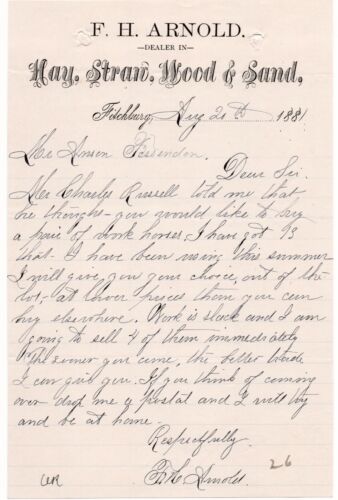 F. H. ARNOLD.
—DEALER IN—
Hay, Straw, Wood & Sand,
Fitchburg, Aug 20th 1881
Mr Anson Fessenden.
Dear Sir.
Mr Charles Russell told me that
he thought you would like to buy
a pair of work horses. I have got 13
that I have been using this summer
I will give you your choice, out of the
lot, at lower prices than you can
buy elsewhere. Work is slack and I am
going to sell 4 of them immediately
The sooner you come, the better trade
I can give you. If you think of coming
over drop me a postal and I will try
and be at home.
Respectfully
F. H. Arnold.
26